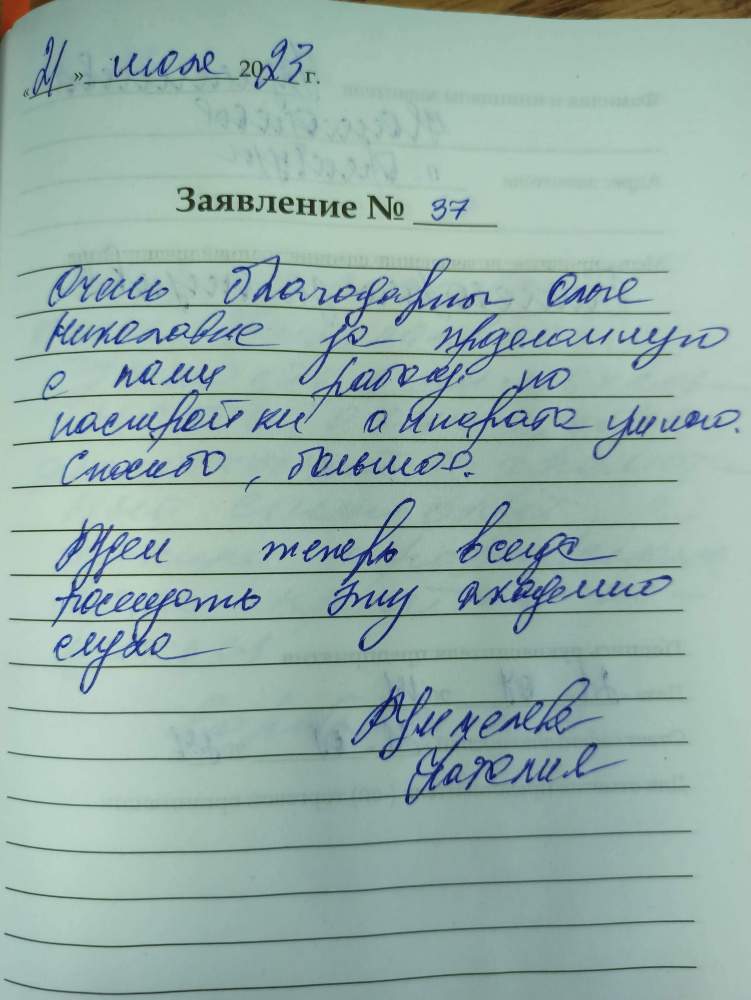 «21» июля 2023 г.
Заявление № 37
Очень благодарны Ольге
Николавне за проделанную
с нами работу по
настройки аппарата ушного.
Спасибо, большое.
Будем теперь всегда
посещать эту академию
слуха
Наталия